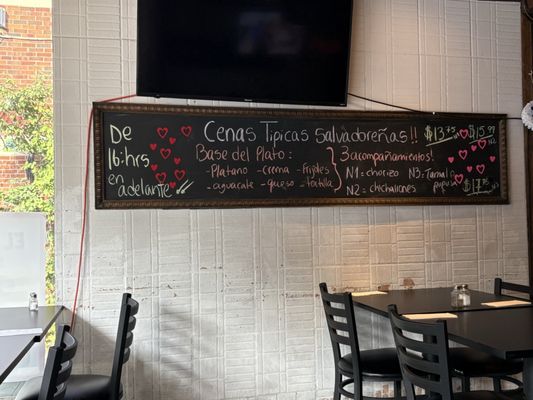 De
16:hrs
en
adelante
Cenas Tipicas Salvadoreñas!!
Base del Plato:
-Platano -Crema -Frijoles
-aguacate -queso -tortilla
3 acompañamientos!
N1: chorizo N3: Tamal o
N2: chicharrones pupusa
$13.75
$15.99
N2
$17.75